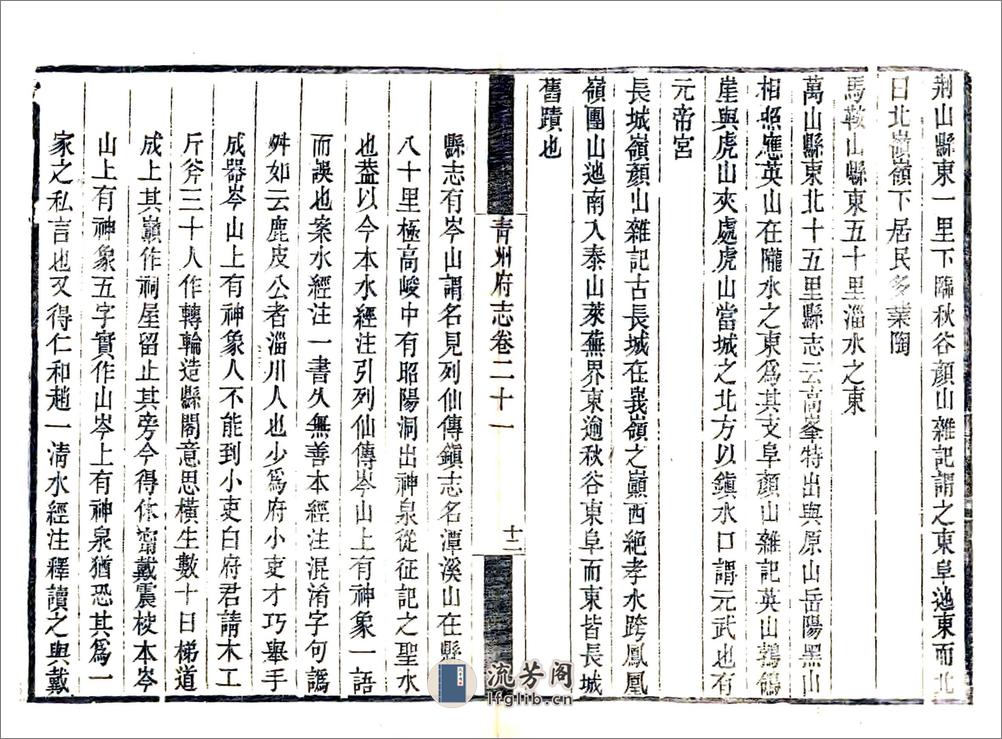 荆山縣東一里下臨秋谷顏山雜記謂之東阜迤東而北
曰北嶺嶺下居民多業陶
馬鞍山縣東五十里淄水之東
萬山縣東北十五里縣志云高峯特出與原山岳陽黑山
相照應英山在隴水之東爲其支阜顏山雜記英山鵓鴿
崖與虎山夾處虎山當城之北方以鎮水口謂元武也有
元帝宮
長城嶺顏山雜記古長城在峩嶺之巓西絶孝水跨鳳凰
嶺團山迤南入泰山萊蕪界東逾秋谷東阜而東皆長城
舊蹟也
青州府志卷二十一
十二
縣志有岑山謂名見列仙傳鎮志名潭溪山在縣
八十里極高峻中有昭陽洞出神泉從征記之聖水
也葢以今本水經注引列仙傳岑山上有神象一語
而誤也案水經注一書久無善本經注混淆字句譌
舛如云鹿皮公者淄川人也少爲府小吏才巧舉手
成器岑山上有神象人不能到小吏白府君請木工
斤斧三十人作轉輪造縣閣意思橫生數十日梯道
成上其巓作祠屋留止其旁今得休甯戴震校本岑
山上有神象五字實作山岑上有神泉猶恐其爲一
家之私言也又得仁和趙一清水經注釋讀之與戴
流芳阁
lfglib.cn